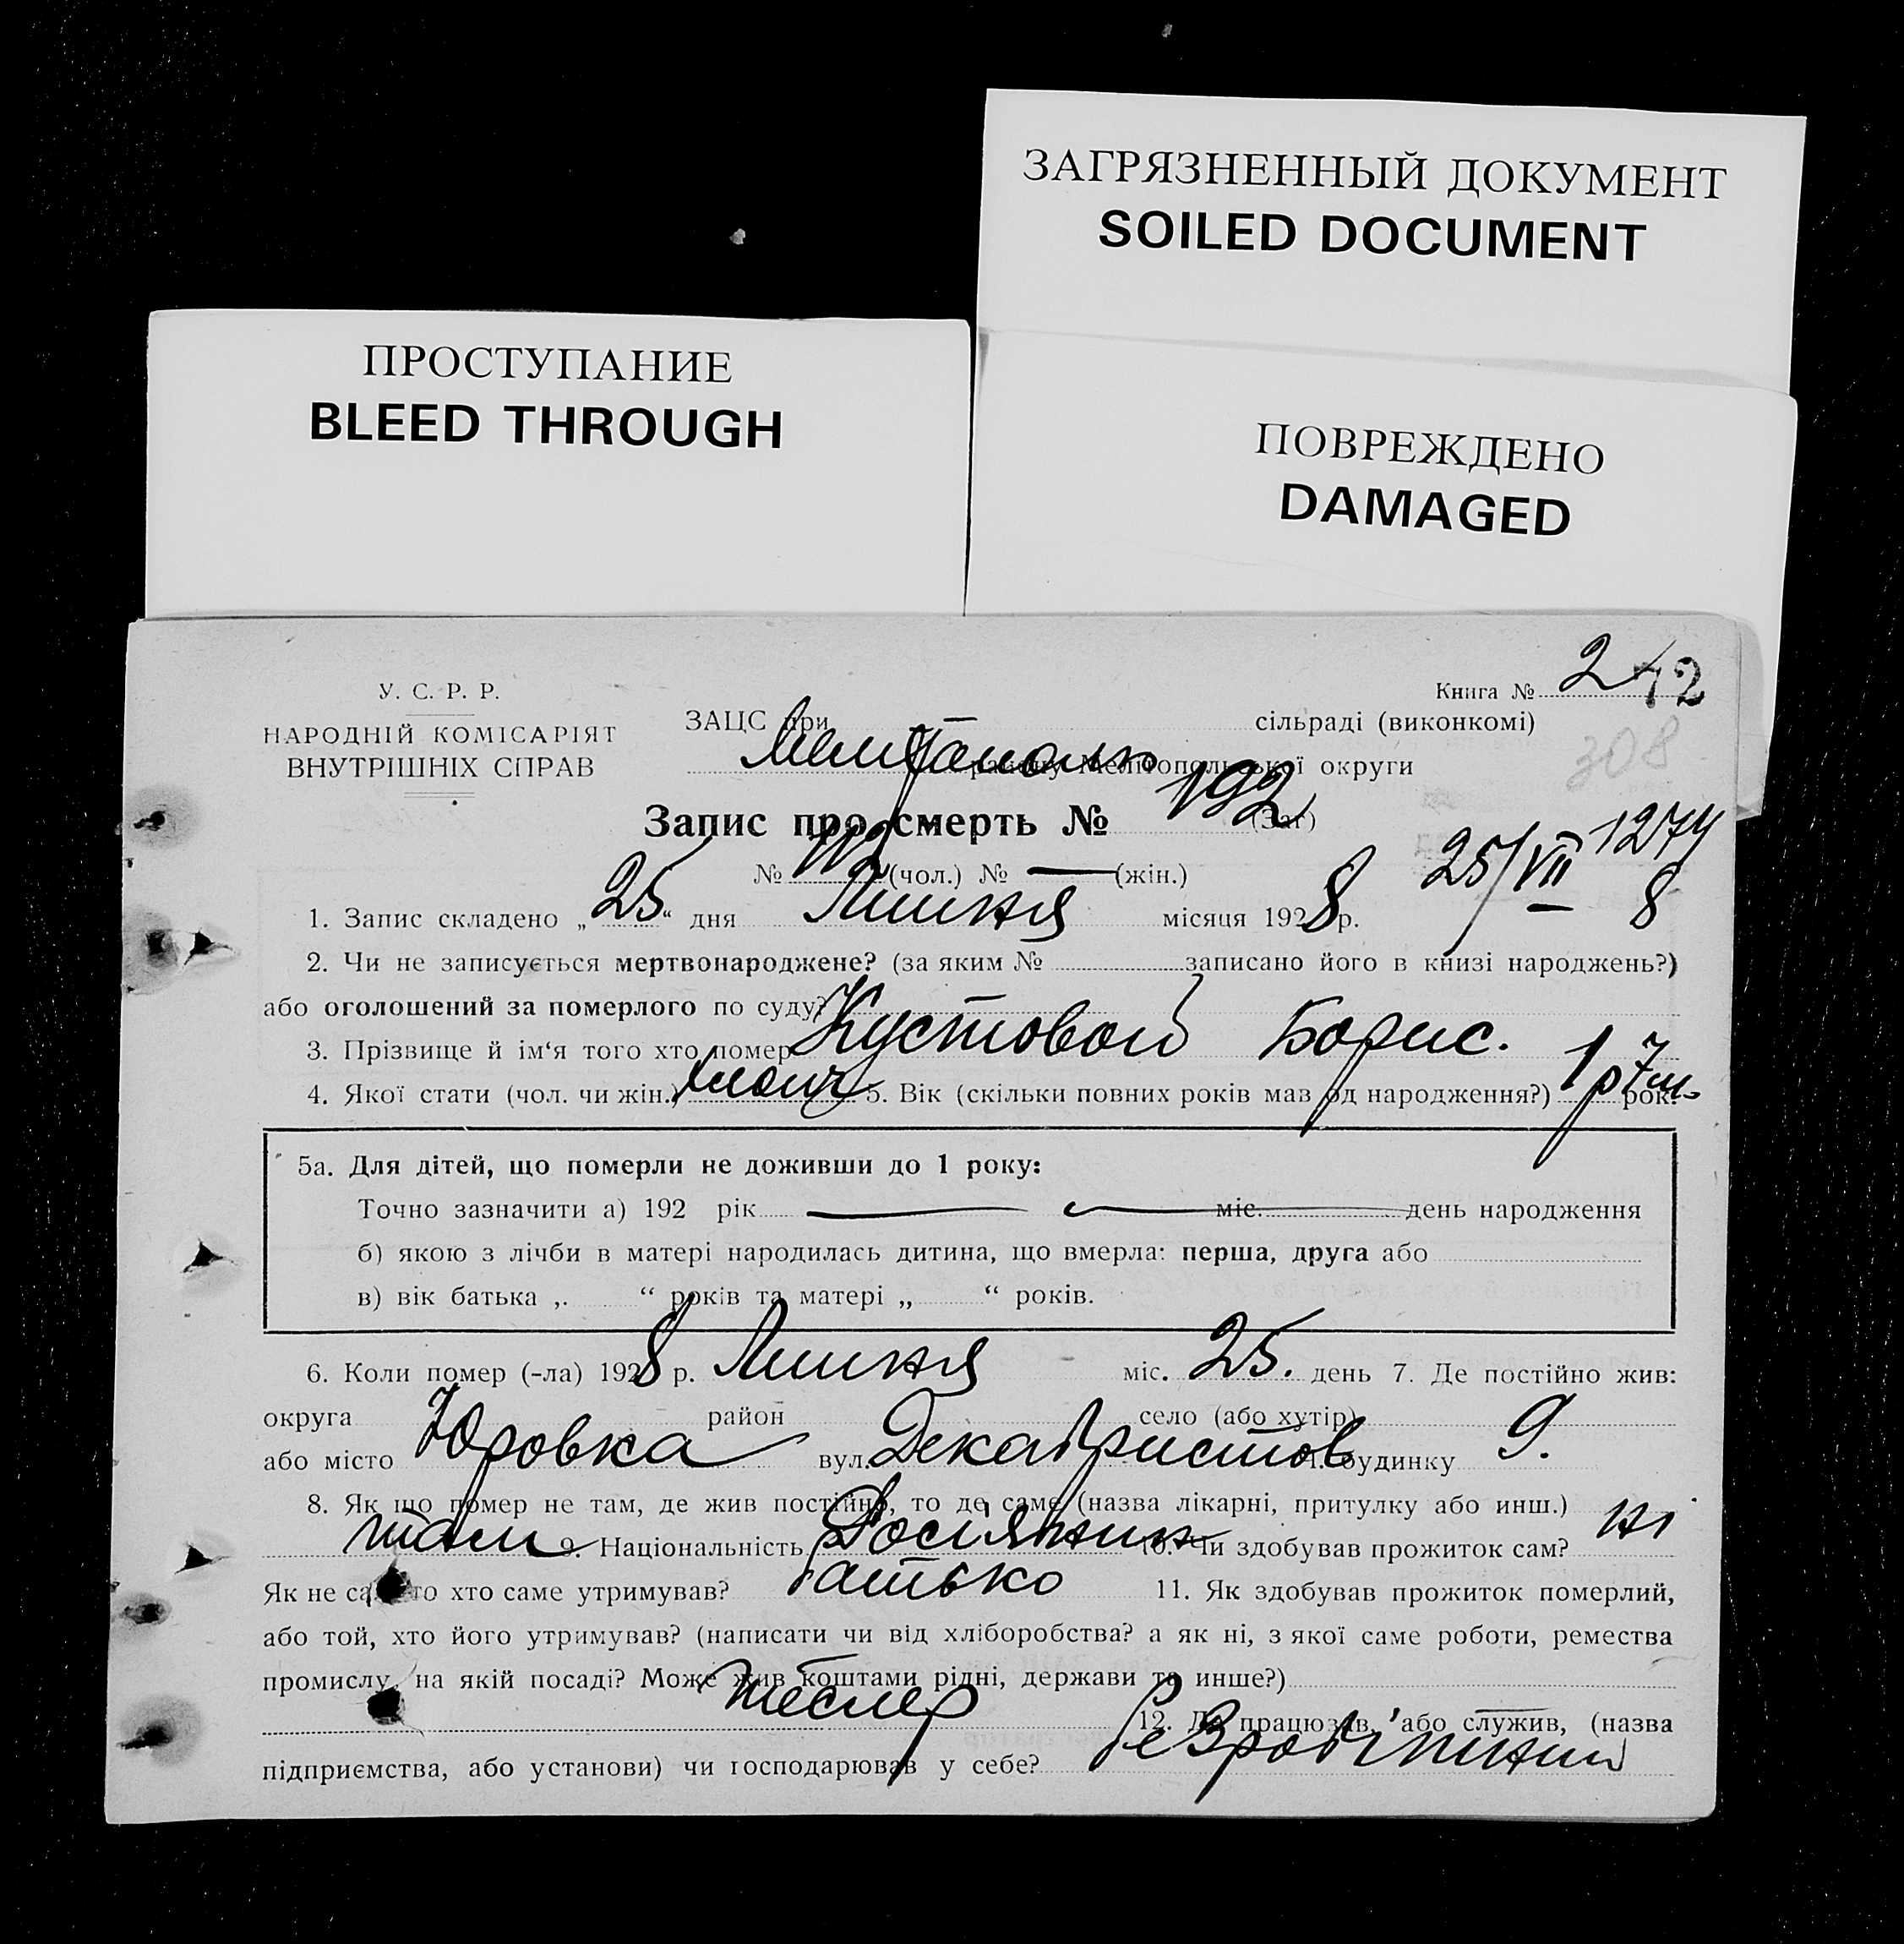 ЗАГРЯЗНЕННЫЙ ДОКУМЕНТ
SOILED DOCUMENT
ПРОСТУПАНИЕ
BLEED THROUGH
ПОВРЕЖДЕНО
DAMAGED
У. С. Р. Р.
НАРОДНІЙ КОМІСАРІЯТ
ВНУТРІШНІХ СПРАВ
Книга № 2
12
308
ЗАЦС при — сільраді (виконкомі)
району Мелітопольської округи
Запис про смерть № 192 (заг)
1274
№ (чол.) № — (жін.)
25/VII 8
1. Запис складено „25“ дня Липня місяця 1928 р.
2. Чи не записується мертвонароджене? (за яким № записано його в книзі народжень?)
або оголошений за померлого по суду?
3. Прізвище й ім‘я того хто помер Кустовой Борис.
4. Якої стати (чол. чи жін.) 5. Вік (скільки повних років мав од народження?) 1 р 7 м. рок.
5а. Для дітей, що померли не доживши до 1 року:
Точно зазначити а) 192 рік — міс. — день народження
б) якою з лічби в матері народилась дитина, що вмерла: перша, друга або
в) вік батька „ “ років та матері „ “ років.
6. Коли помер (-ла) 1928 р. Липня міс. 25. день 7. Де постійно жив:
округа район село (або хутір)
або місто Юровка вул. Декабристов ч. будинку 9.
8. Як що помер не там, де жив постійно, то де саме (назва лікарні, притулку або инш.)
там 9. Національність Росіянин 10. Чи здобував прожиток сам? ні
Як не сам, то хто саме утримував? батько 11. Як здобував прожиток померлий,
або той, хто його утримував? (написати чи від хліборобства? а як ні, з якої саме роботи, ремества
промислу, на якій посаді? Може жив коштами рідні, держави та инше?)
тесляр 12. Де працював, або служив, (назва
підприємства, або установи) чи господарював у себе? безробітний